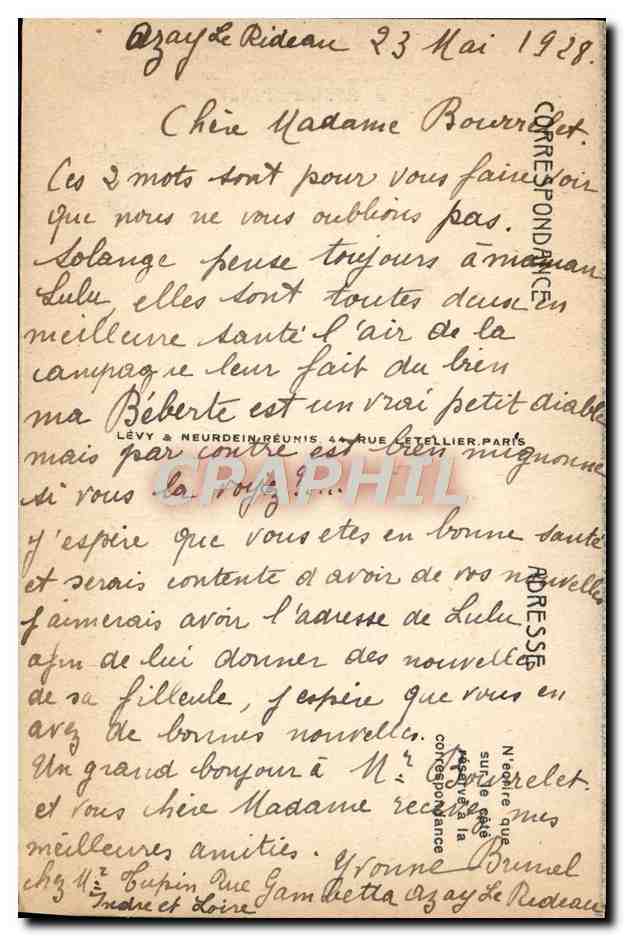 Azay Le Rideau 23 Mai 1928.
Chère Madame Bourrelet.
Ces 2 mots sont pour vous faire voir
que nous ne vous oublions pas.
Solange pense toujours à maman
Lulu, elles sont toutes deux en
meilleure santé l'air de la
campagne leur fait du bien
ma Béberte est un vrai petit diable
mais par contre est bien mignonne
si vous la voyez !...
j'espère que vous etes en bonne santé
et serais contente d'avoir de vos nouvelles
j'aimerais avoir l'adresse de Lulu
afin de lui donner des nouvelles
de sa filleule, j'espère que vous en
avez de bonnes nouvelles.
Un grand bonjour à Mr Bourrelet.
et vous chère Madame recevez mes
meilleures amitiés. Yvonne Brunel
chez Mr Tupin Rue Gambetta Azay Le Rideau
Indre et Loire
CORRESPONDANCE
ADRESSE
N'écrire que
sur le côté
réservé à la
correspondance
LÉVY & NEURDEIN RÉUNIS, 44, RUE LETELLIER, PARIS
CPARPHIL